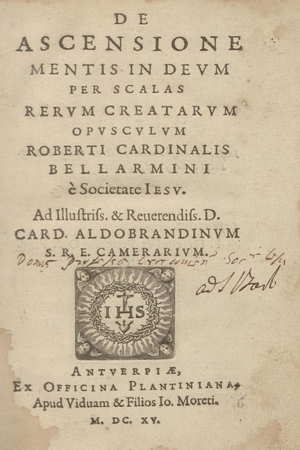 DE
ASCENSIONE
MENTIS IN DEVM
PER SCALAS
RERVM CREATARVM
OPVSCVLVM
ROBERTI CARDINALIS
BELLARMINI
è Societate IESV.
Ad Illustriss. & Reuerendiss. D.
CARD. ALDOBRANDINVM
S. R. E. CAMERARIVM.
IHS
ANTVERPIÆ,
EX OFFICINA PLANTINIANA,
Apud Viduam & Filios Io. Moreti.
M. DC. XV.